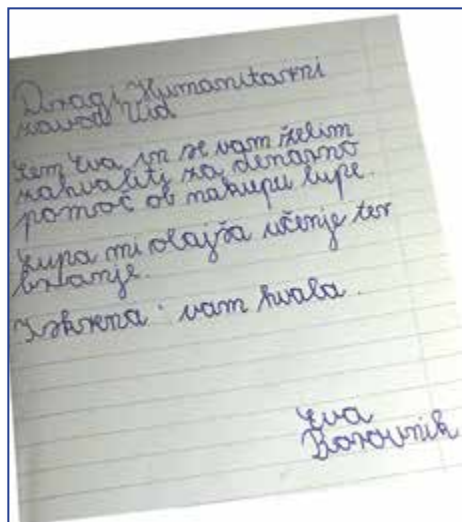 Dragi Humanitarni
zavod Vid
sem Eva in se vam želim
zahvaliti za denarno
pomoč ob nakupu lupe.
Lupa mi olajša učenje ter
branje.
Iskrena vam hvala.
Eva
Borovnik